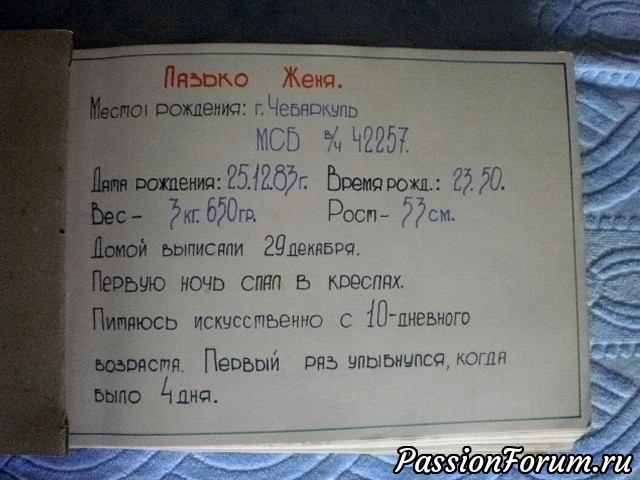 Лазько Женя.
Место рождения: г. Чебаркуль
МСБ в/ч 42257.
Дата рождения: 25.12.83г. Время рожд.: 23.50.
Вес - 3 кг. 650 гр. Рост - 53 см.
Домой выписали 29 декабря.
Первую ночь спал в креслах.
Питаюсь искусственно с 10-дневного
возраста. Первый раз улыбнулся, когда
было 4 дня.
PassionForum.ru